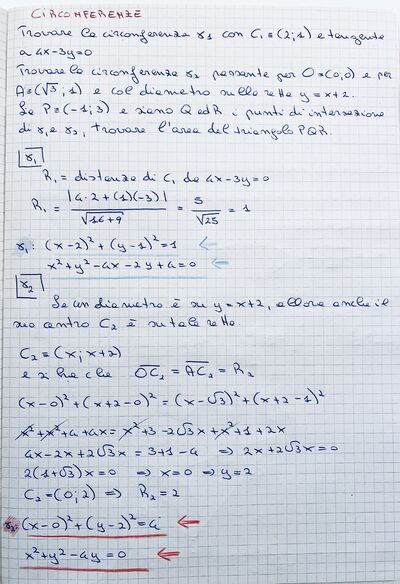 CIRCONFERENZE
Trovare la circonferenza γ1 con C1≡(2;1) e tangente
a 4x-3y=0
Trovare la circonferenza γ2 passante per O≡(0,0) e per
A≡(√3;1) e col diametro sulla retta y=x+2.
Se P≡(-1;3) e siano Q ed R i punti di intersezione
di γ1 e γ2, trovare l'area del triangolo PQR.
γ1
R1 = distanza di C1 da 4x-3y=0
R1 = |4·2+(1)(-3)| / √16+9 = 5/√25 = 1
γ1: (x-2)²+(y-1)²=1 ←
x²+y²-4x-2y+4=0 ←
γ2
Se un diametro è su y=x+2, allora anche il
suo centro C2 è su tale retta.
C2=(x;x+2)
e si ha che OC2 = AC2 = R2
(x-0)²+(x+2-0)²=(x-√3)²+(x+2-1)²
x²+x²+4+4x=x²+3-2√3x+x²+1+2x
4x-2x+2√3x=3+1-4 ⇒ 2x+2√3x=0
2(1+√3)x=0 ⇒ x=0 ⇒ y=2
C2=(0;2) ⇒ R2=2
γ2: (x-0)²+(y-2)²=4 ←
x²+y²-4y=0 ←